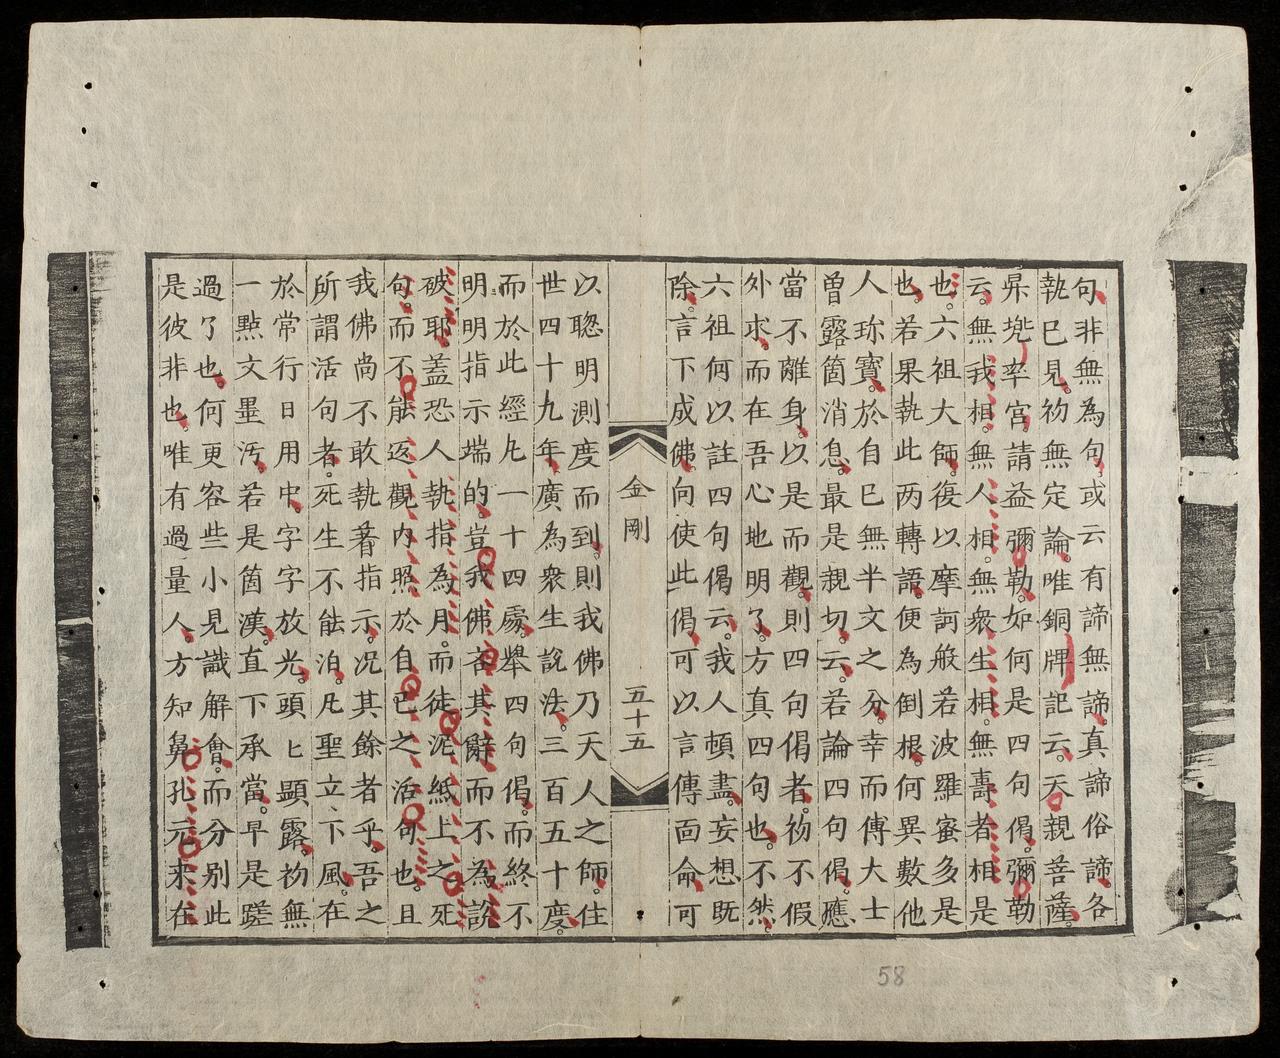 句非無為句或云有諦無諦真諦俗諦各
執巳見初無定論唯銅牌記云天親菩薩。
昇兠率宮請益彌勒如何是四句偈彌勒
云。無我相無人相無衆生相無壽者相是
也。六祖大師復以摩訶般若波羅蜜多是
也若果執此两轉語便為倒根何異數他
人珎寶於自巳無半文之分幸而傅大士
曾露箇消息最是親切云若論四句偈應
當不離身以是而觀則四句偈者初不假
外求而在吾心地明了。方真四句也不然。
六祖何以註四句偈云。我人頓盡妄想既
除言下成佛向使此偈可以言傳面命可
金剛
五十五
以聦明測度而到則我佛乃天人之師住
世四十九年廣為衆生說法三百五十度。
而於此經凢一十四處舉四句偈。而終不
明明指示端的豈我佛吝其辭而不為説
破耶蓋恐人執指為月。而徒泥紙上之死
句。而不能返觀内照於自巳之活句也。且
我佛尚不敢執著指示。况其餘者乎。吾之
所謂活句者。死生不能泊。凢聖立下風。在
於常行日用中字字放光。頭匕顯露。初無
一㸃文墨汚。若是箇漢直下承當。早是蹉
過了也何更容些小見識解會。而分别此
是彼非也。唯有過量人。方知鼻孔元来在
58